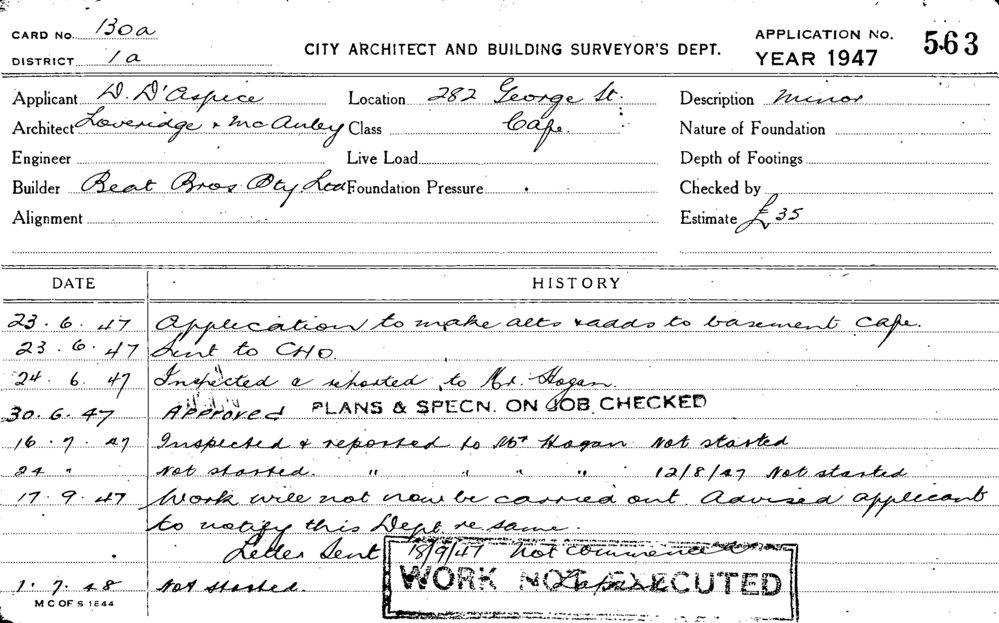 CARD NO. 130a
DISTRICT 1a
CITY ARCHITECT AND BUILDING SURVEYOR'S DEPT.
APPLICATION NO. 563
YEAR 1947
Applicant D. D'Aspice Location 282 George St. Description Minor
Architect Loveridge & McAuley Class Cafe. Nature of Foundation
Engineer Live Load Depth of Footings
Builder Beat Bros Pty Ltd Foundation Pressure Checked by
Alignment Estimate £35
DATE HISTORY
23.6.47 Application to make alts & adds to basement cafe.
23.6.47 Sent to CHO.
24.6.47 Inspected & reported to Mr. Hogan.
30.6.47 Approved PLANS & SPECN. ON JOB CHECKED
16.7.47 Inspected & reported to Mr Hogan Not started
24 " Not started. " " " " 12/8/47 Not started
17.9.47 Work will not now be carried out. Advised applicant
to notify this Dept. re same.
Letter Sent 18/9/47 Not commenced
1.7.48 Not started.
WORK NOT EXECUTED
M C OF S 1844